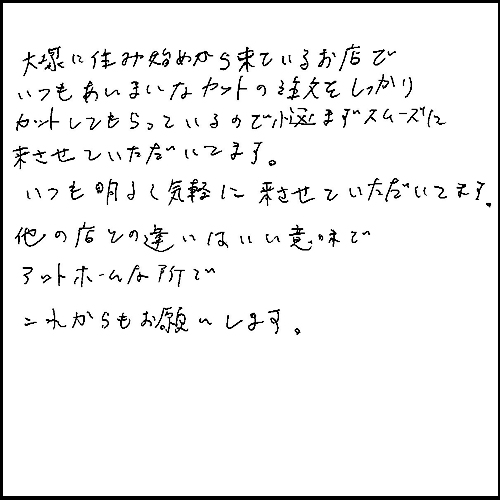 大塚に住み始めから来ているお店で
いつもあいまいなカットの注文をしっかり
カットしてもらっているので悩まずスムーズに
来させていただいてます。
いつも明るく気軽に来させていただいてます。
他の店との違いはいい意味で
アットホームな所で
これからもお願いします。